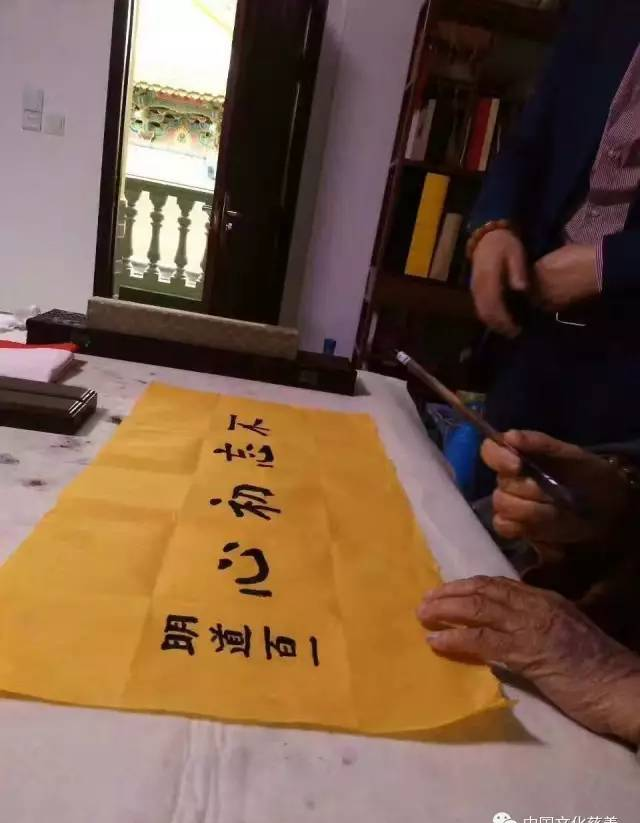 不忘初心
明道百一
中国文化慈善